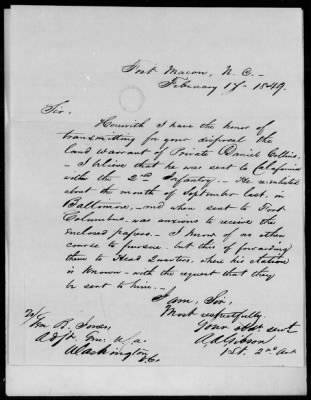 Fort Macon, N. C. –
February 17 – 1849.
Sir.
Herewith I have the honor of
transmitting for your disposal the
land warrant of Private Daniel Collins,
– I believe that he was sent to California
with the 2nd Infantry – He enlisted
about the month of September last, in
Baltimore, and when sent to Fort
Columbus was anxious to receive the
enclosed papers. – I know of no other
course to pursue but this of forwarding
them to Head Quarters, where his station
is known – with the request that they
be sent to him. –
I am, Sir,
Most respectfully
Your obdt servt
A A Gibson
1 Lt. 2nd Art
To/
B. Jones,
Adjt. Gen. U.S.A.
Washington
D.C.